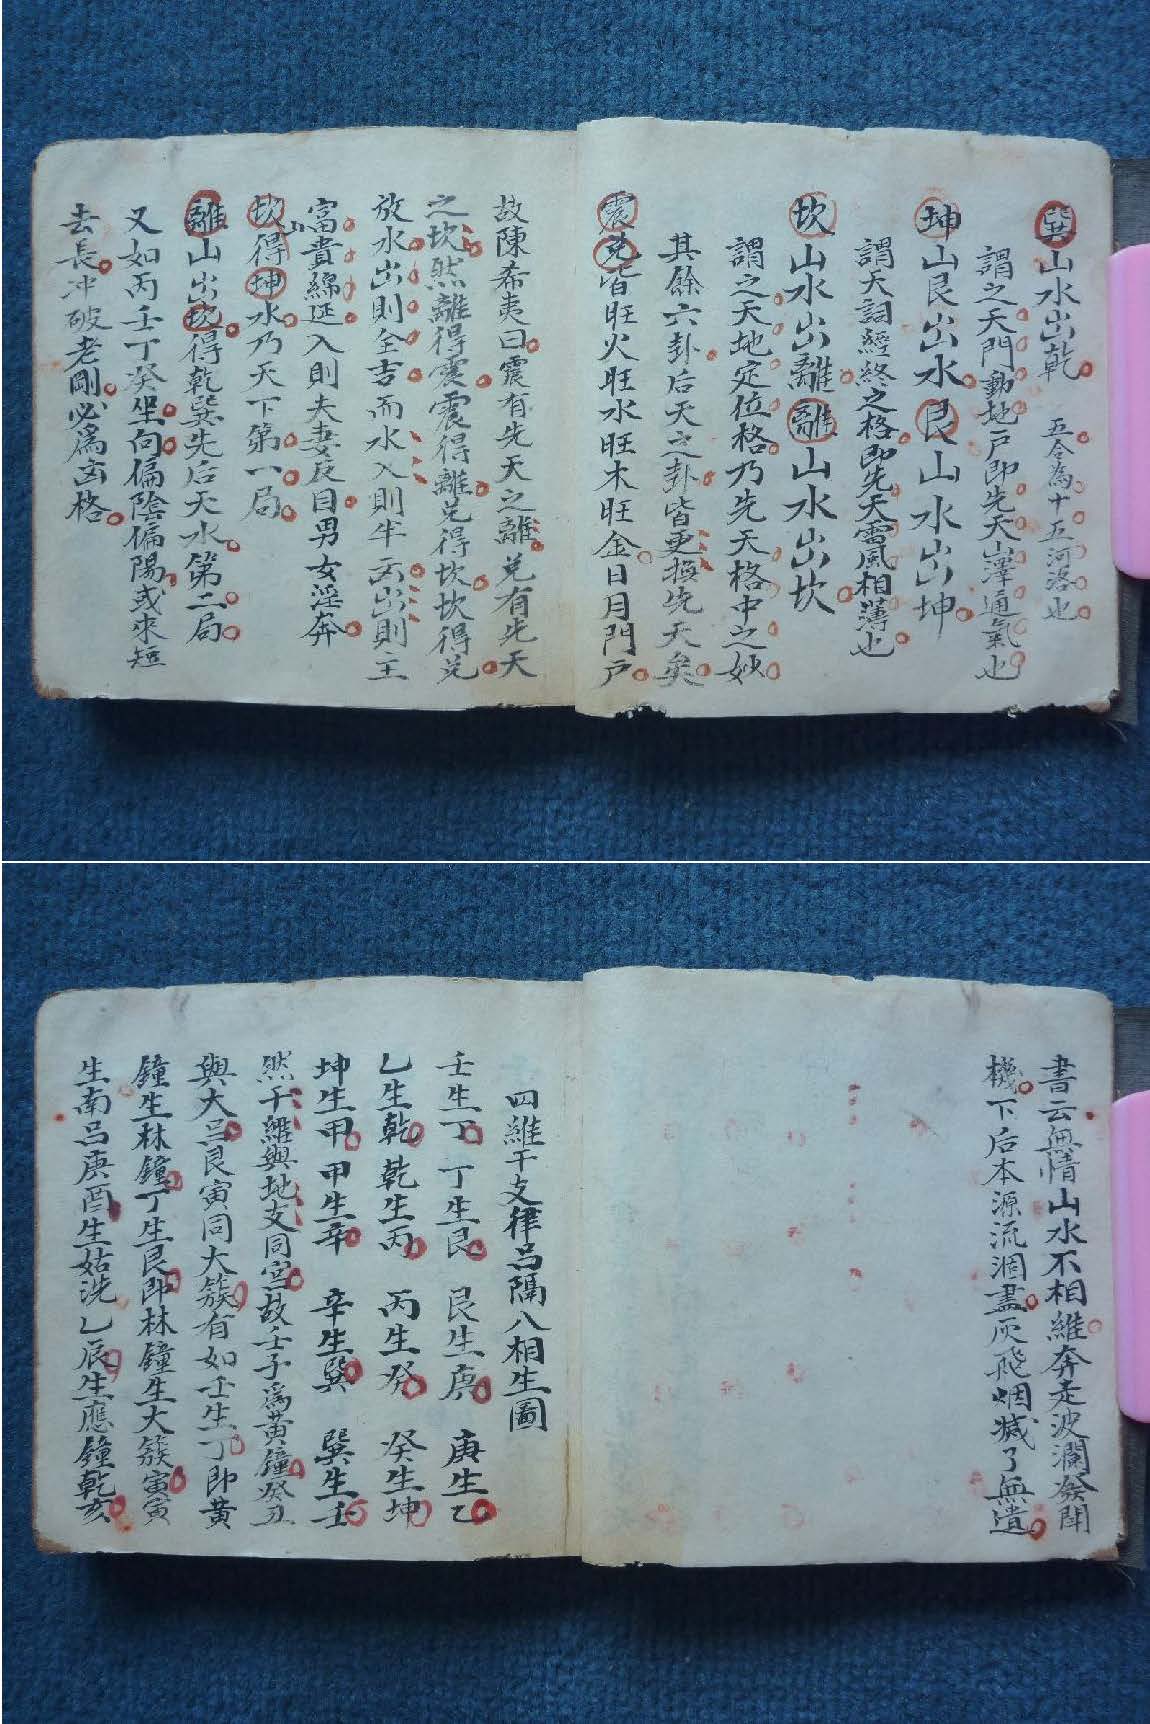 巽山水出乾 五令為十五河洛也
謂之天門動地戶即先天山澤通氣也
坤山艮出水艮山水出坤
謂天詞經終之格即先天雷風相薄也
坎山水出離離山水出坎
謂之天地定位格乃先天格中之妙
其餘六卦后天之卦皆更換先天矣
震兌皆旺火旺水旺木旺金日月門戶
故陳希夷曰震有先天之離兌有先天
之坎然離得震震得離兌得坎坎得兌
放水出則全吉而水入則半凶出則主
富貴綿延入則夫妻反目男女淫奔
坎山得坤水乃天下第一局
離山出坎得乾巽先后天水第二局
又如丙壬丁癸坐向偏陰偏陽或來短
去長冲破老剛必為凶格
書云無情山水不相維奔走波瀾發開
機下后本源流涸盡灰飛烟滅了無遺
四維干支律呂隔八相生圖
壬生丁 丁生艮 艮生庚 庚生乙
乙生乾 乾生丙 丙生癸 癸生坤
坤生甲 甲生辛 辛生巽 巽生壬
然干維與地支同宮故壬子為黃鐘癸丑
與大呂艮寅同大簇有如壬生丁即黃
鐘生林鐘丁生艮即林鐘生大簇寅寅
生南呂庚酉生姑洗乙辰生應鐘乾亥